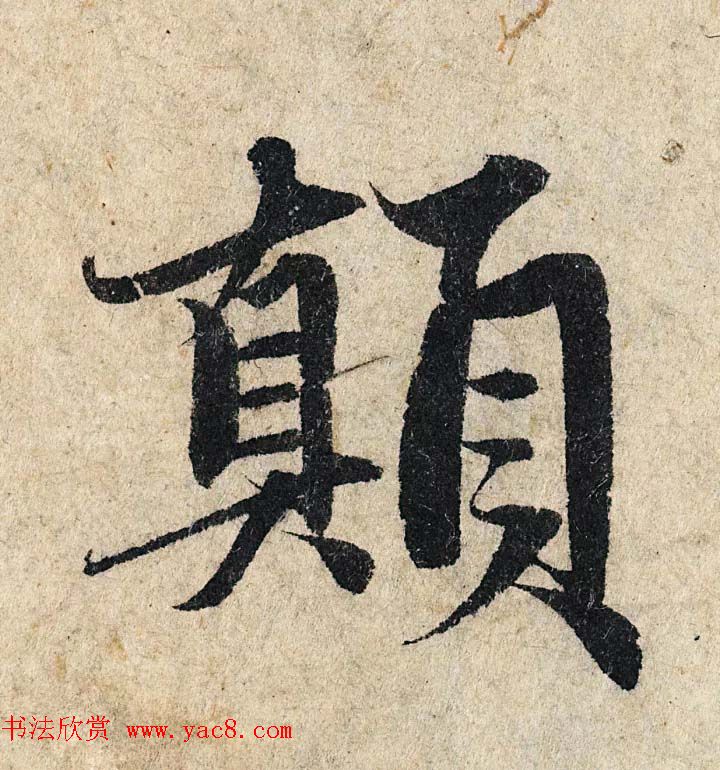 顛
书法欣赏 www.yac8.com